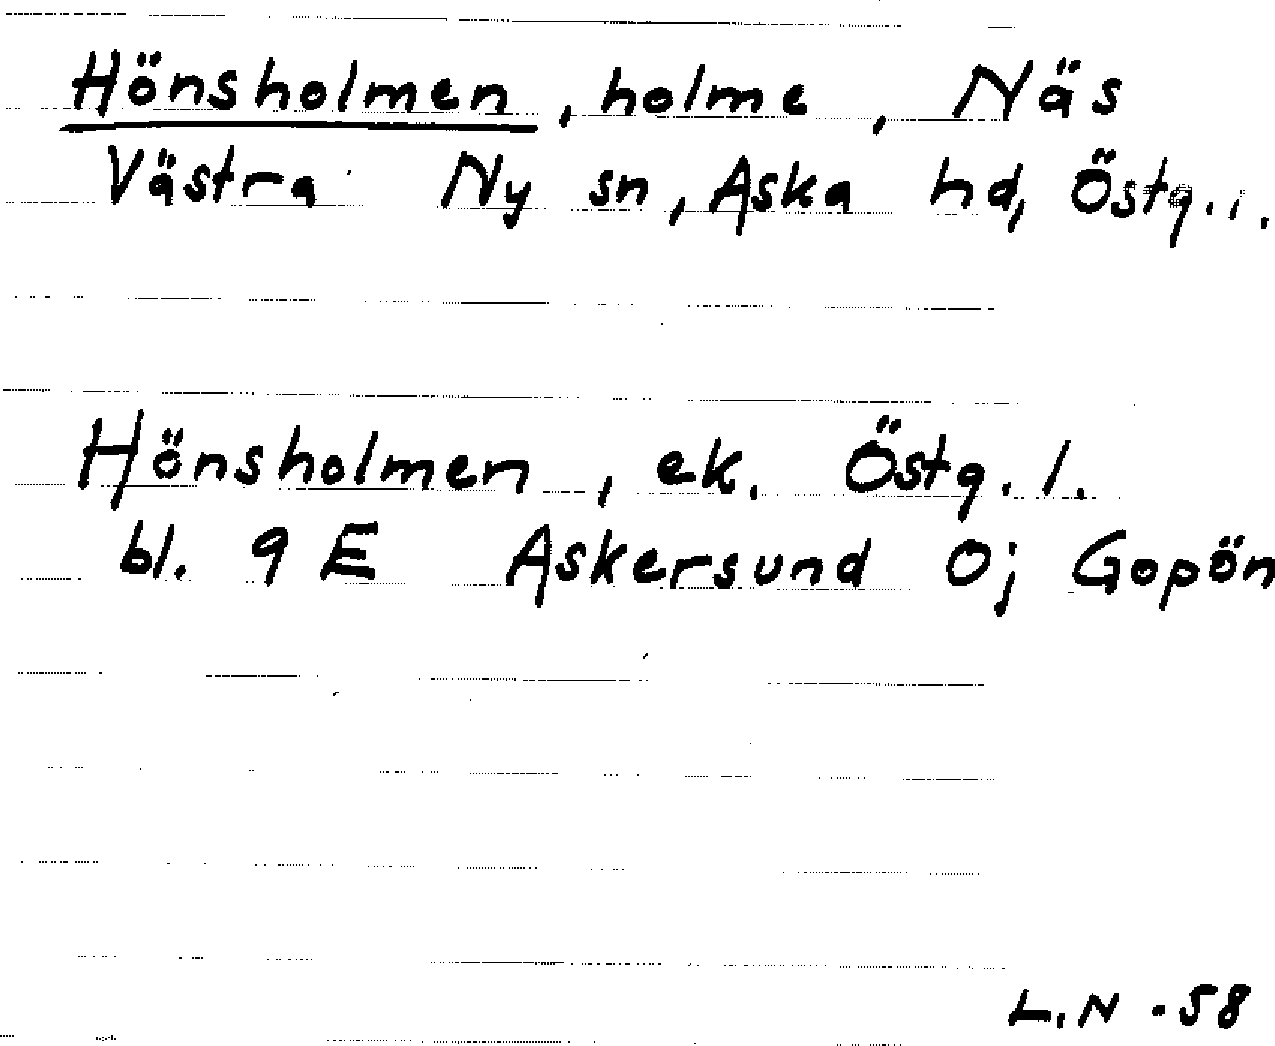 Hönsholmen, holme, Näs
Västra Ny sn, Aska hd, Östg. l.
Hönsholmen, ek. Östg. l.
bl. 9 E Askersund 0j Gopön
L.N -58